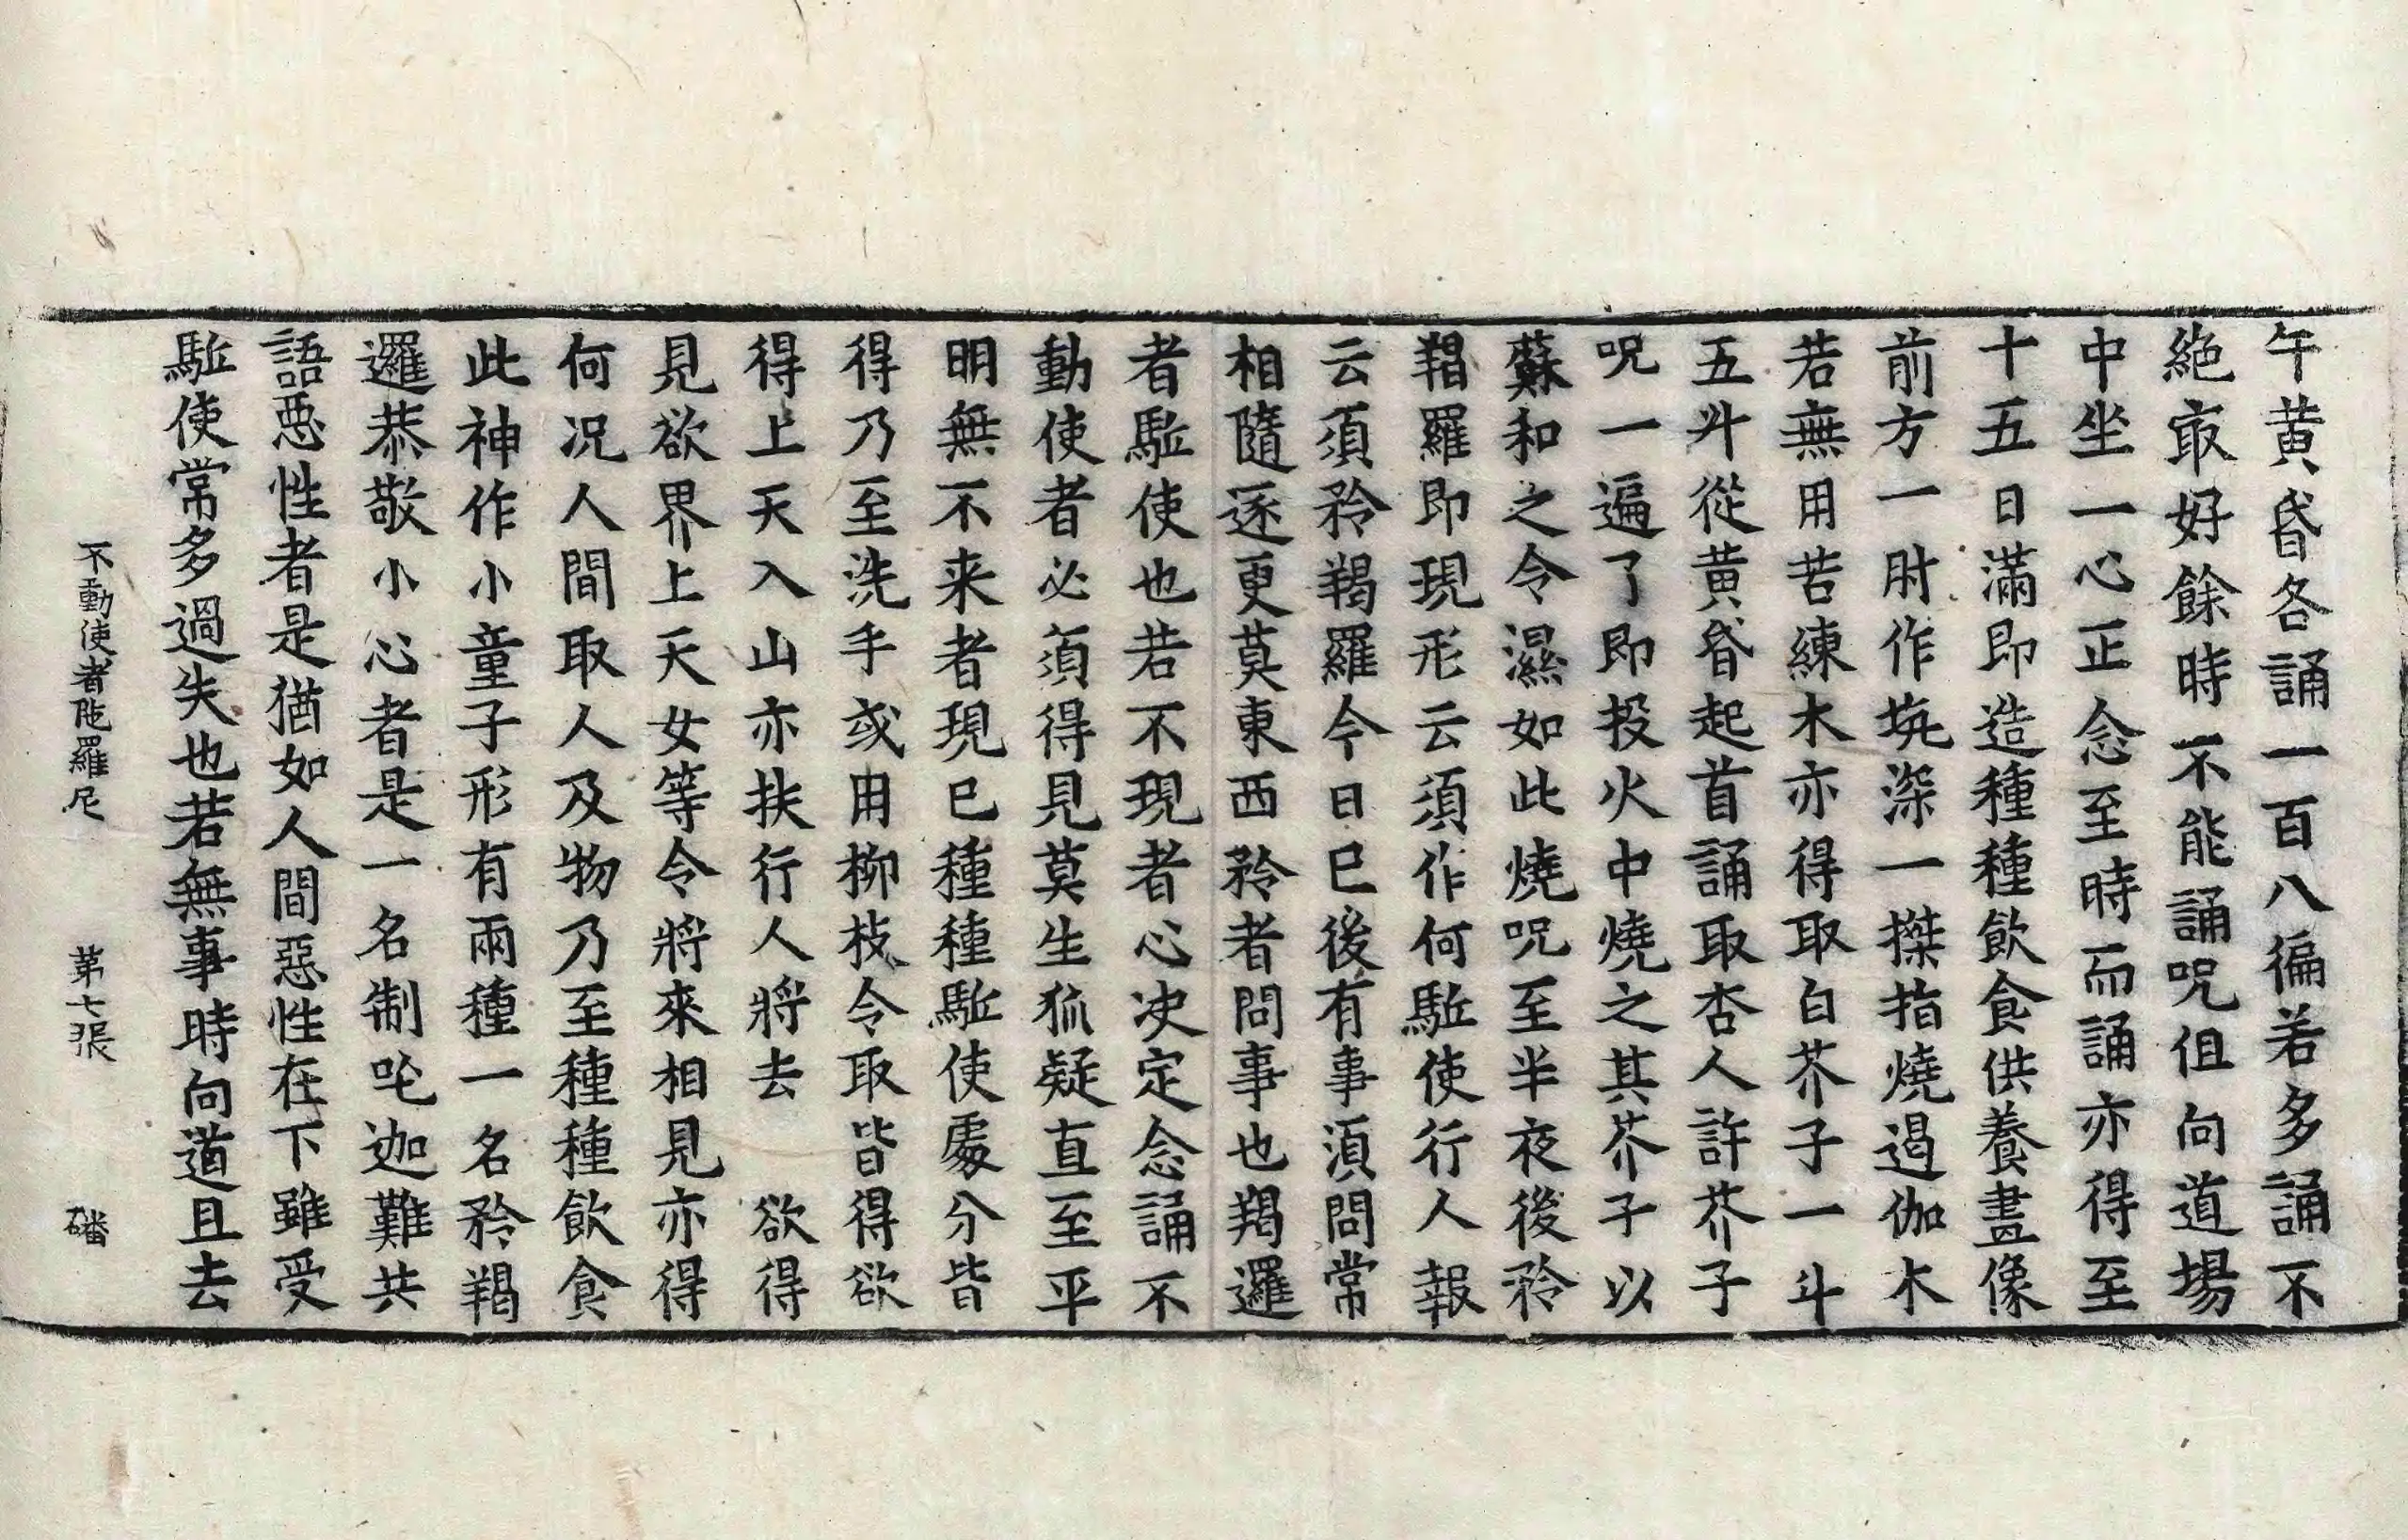 午黃昏各誦一百八徧若多誦不
絕㝡好餘時不能誦呪伹向道場
中坐一心正念至時而誦亦得至
十五日滿即造種種飲食供養畫像
前方一肘作埦深一搩指燒遏伽木
若無用苦練木亦得取白芥子一斗
五㪷從黃昏起首誦取杏人許芥子
呪一遍了即投火中燒之其芥子以
蘇和之令濕如此燒呪至半夜後矜
羯羅即現形云須作何駈使行人報
云須矜羯羅今日已後有事須問常
相隨逐更莫東西矜者問事也羯邏
者駈使也若不現者心决定念誦不
動使者必須得見莫生狐疑直至平
明無不来者現已種種駈使處分皆
得乃至洗手或用柳枝令取皆得欲
得上天入山亦扶行人將去　欲得
見欲界上天女等令將來相見亦得
何况人間取人及物乃至種種飲食
此神作小童子形有兩種一名矜羯
邏恭敬小心者是一名制吒迦難共
語惡性者是猶如人間惡性在下雖受
駈使常多過失也若無事時向道且去
不動使者陁羅尼　第七張　磻